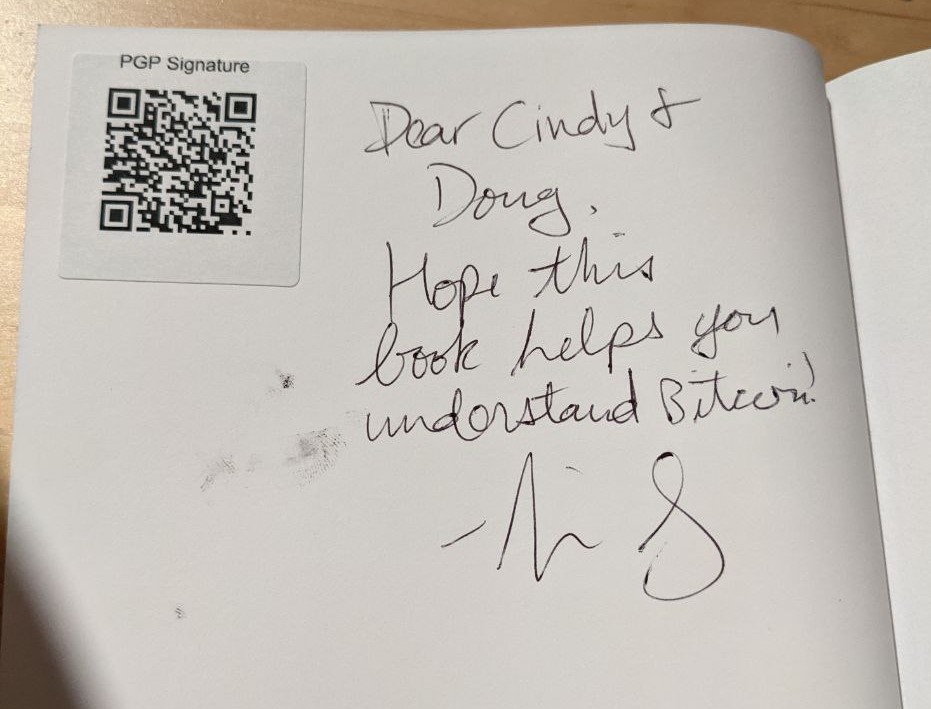 PGP Signature
Dear Cindy &
Doug,
Hope this
book helps you
understand Bitcoin!